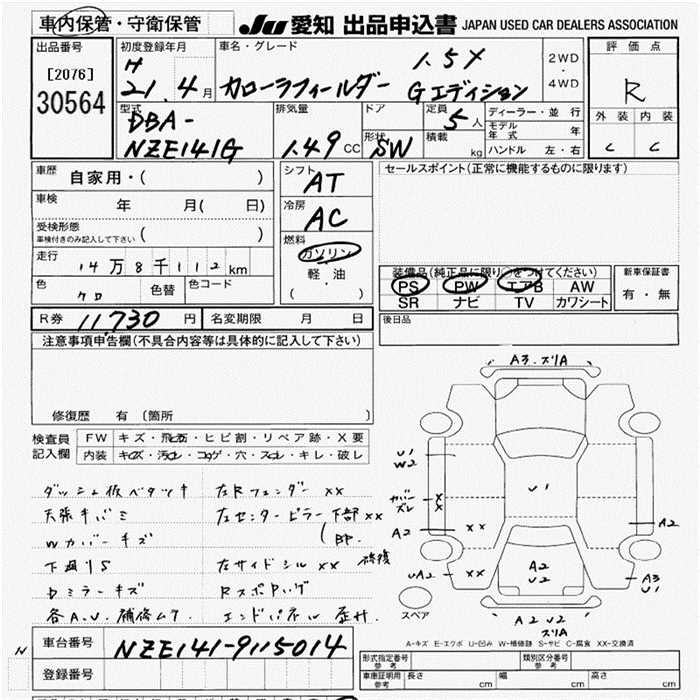 車内保管・守衛保管
JU 愛知 出品申込書 JAPAN USED CAR DEALERS ASSOCIATION
出品番号
[2076]
30564
初度登録年月
H
21.4月
車名・グレード
カローラフィールダー 1.5X
Gエディション
2WD
・
4WD
評価点
R
外装 内装
C C
型式
DBA-
NZE141G
排気量
1.49 CC
ドア
形状
SW
定員
5人
積載
kg
ディーラー・並行
モデル年式 年
ハンドル 左・右
車歴
自家用・( )
車検
年 月( 日)
受検形態
車検付きのみ記入して下さい ( )
走行
14万8千112km
色
クロ
色替
色コード
シフト
AT
冷房
AC
燃料
ガソリン
軽油
( ・ )
セールスポイント(正常に機能するものに限ります)
装備品(純正品に限り○をつけてください)
PS PW エアB AW
SR ナビ TV カワシート
新車保証書
有・無
R券 11,730円
名変期限 月 日
後日品
注意事項申告欄(不具合内容等は具体的に記入して下さい)
修復歴 有(箇所 )
検査員
記入欄
FW キズ・飛石・ヒビ割・リペア跡・X要
内装 キズ・汚れ・コゲ・穴・スレ・キレ・破レ
ダッシュ板ベタツキ
天張キバミ
Wカバーキズ
下廻りS
Dミラーキズ
各A.U.補修ムラ
左Rフェンダーxx
左センターピラー下部xx
左サイドシルxx 修復
Rスポハゲ
エンドパネル歪み
A3.スリA
U1
W2
カバーズレ
xx
A2
xx
UA2
xx
U1
A2
U2
A2
A3
U1
A2 U2
スリA
スペア
A-キズ E-エクボ U-凹み W-補修跡 S-サビ C-腐食 XX-交換済
車台番号
NZE141-9115014
登録番号
形式指定番号
参考
類別区分番号
参考
車庫証明用
参考
長さ cm
幅 cm
高さ cm